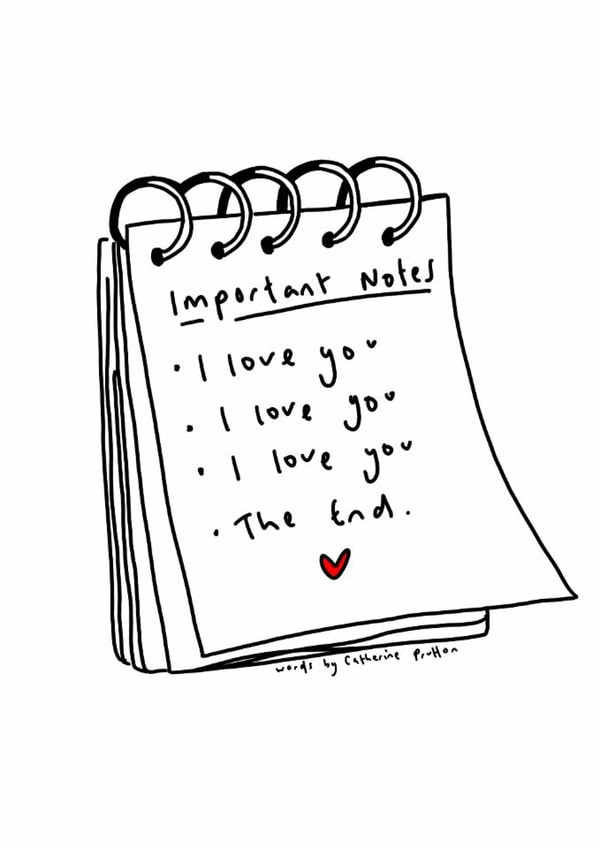 Important Notes
· I love you
· I love you
· I love you
· The End.
words by Catherine Prutton